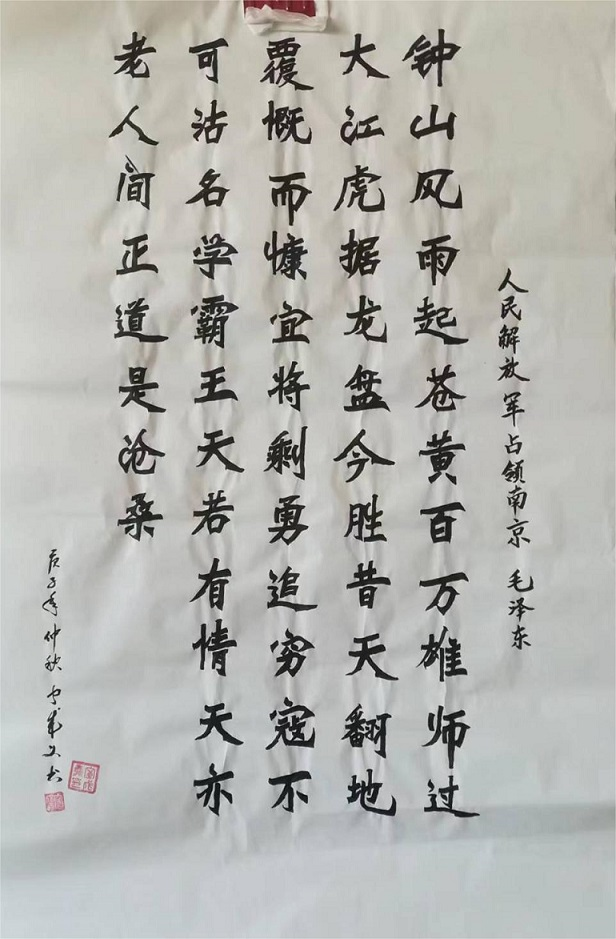 人民解放军占领南京 毛泽东
钟山风雨起苍黄百万雄师过
大江虎据龙盘今胜昔天翻地
覆慨而慷宜将剩勇追穷寇不
可沽名学霸王天若有情天亦
老人间正道是沧桑
庚子年仲秋